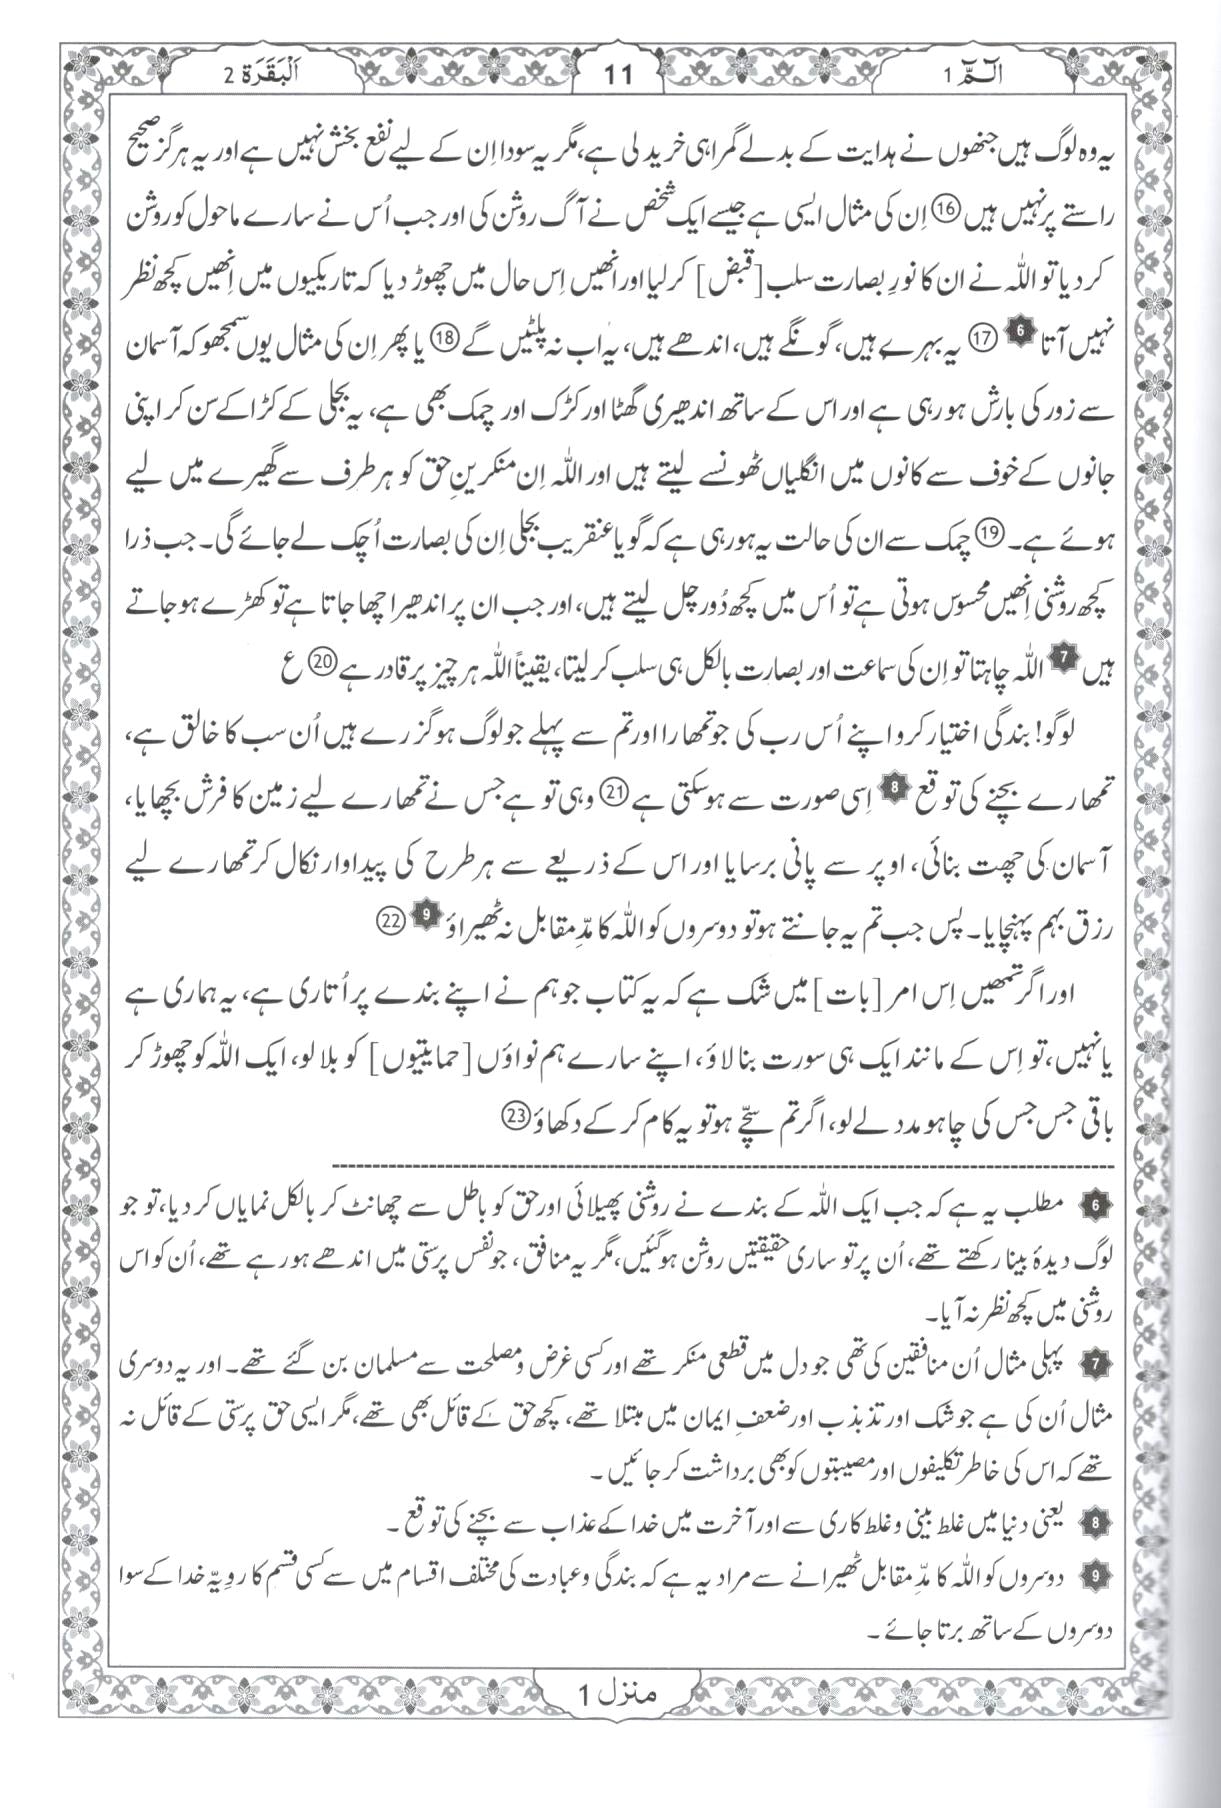 الٓمّٓ 1
11
اَلْبَقَرَة 2
یہ وہ لوگ ہیں جنھوں نے ہدایت کے بدلے گمراہی خرید لی ہے، مگر یہ سودا اِن کے لیے نفع بخش نہیں ہے اور یہ ہرگز صحیح
راستے پر نہیں ہیں ⑯ اِن کی مثال ایسی ہے جیسے ایک شخص نے آگ روشن کی اور جب اُس نے سارے ماحول کو روشن
کر دیا تو اللہ نے ان کا نورِ بصارت سلب [قبض] کر لیا اور انھیں اِس حال میں چھوڑ دیا کہ تاریکیوں میں اِنھیں کچھ نظر
نہیں آتا 6 ⑰ یہ بہرے ہیں، گونگے ہیں، اندھے ہیں، یہ اب نہ پلٹیں گے ⑱ یا پھر اِن کی مثال یوں سمجھو کہ آسمان
سے زور کی بارش ہو رہی ہے اور اس کے ساتھ اندھیری گھٹا اور کڑک اور چمک بھی ہے، یہ بجلی کے کڑاکے سن کر اپنی
جانوں کے خوف سے کانوں میں انگلیاں ٹھونسے لیتے ہیں اور اللہ اِن منکرینِ حق کو ہر طرف سے گھیرے میں لیے
ہوئے ہے۔ ⑲ چمک سے ان کی حالت یہ ہو رہی ہے کہ گویا عنقریب بجلی اِن کی بصارت اُچک لے جائے گی۔ جب ذرا
کچھ روشنی اِنھیں محسوس ہوتی ہے تو اُس میں کچھ دُور چل لیتے ہیں، اور جب ان پر اندھیرا چھا جاتا ہے تو کھڑے ہو جاتے
ہیں 7 اللہ چاہتا تو اِن کی سماعت اور بصارت بالکل ہی سلب کر لیتا، یقیناً اللہ ہر چیز پر قادر ہے ⑳ ع
لوگو! بندگی اختیار کرو اپنے اُس رب کی جو تمھارا اور تم سے پہلے جو لوگ ہو گزرے ہیں اُن سب کا خالق ہے،
تمھارے بچنے کی توقع 8 اِسی صورت سے ہو سکتی ہے ㉑ وہی تو ہے جس نے تمھارے لیے زمین کا فرش بچھایا،
آسمان کی چھت بنائی، اوپر سے پانی برسایا اور اس کے ذریعے سے ہر طرح کی پیداوار نکال کر تمھارے لیے
رزق بہم پہنچایا۔ پس جب تم یہ جانتے ہو تو دوسروں کو اللہ کا مدِّ مقابل نہ ٹھیراؤ 9 ㉒
اور اگر تمھیں اِس امر [بات] میں شک ہے کہ یہ کتاب جو ہم نے اپنے بندے پر اُتاری ہے، یہ ہماری ہے
یا نہیں، تو اِس کے مانند ایک ہی سورت بنا لاؤ، اپنے سارے ہم نواؤں [حمایتیوں] کو بلا لو، ایک اللہ کو چھوڑ کر
باقی جس جس کی چاہو مدد لے لو، اگر تم سچّے ہو تو یہ کام کر کے دکھاؤ ㉓
6 مطلب یہ ہے کہ جب ایک اللہ کے بندے نے روشنی پھیلائی اور حق کو باطل سے چھانٹ کر بالکل نمایاں کر دیا، تو جو
لوگ دیدۂ بینا رکھتے تھے، اُن پر تو ساری حقیقتیں روشن ہو گئیں، مگر یہ منافق، جو نفس پرستی میں اندھے ہو رہے تھے، اُن کو اس
روشنی میں کچھ نظر نہ آیا۔
7 پہلی مثال اُن منافقین کی تھی جو دل میں قطعی منکر تھے اور کسی غرض و مصلحت سے مسلمان بن گئے تھے۔ اور یہ دوسری
مثال اُن کی ہے جو شک اور تذبذب اور ضعفِ ایمان میں مبتلا تھے، کچھ حق کے قائل بھی تھے، مگر ایسی حق پرستی کے قائل نہ
تھے کہ اس کی خاطر تکلیفوں اور مصیبتوں کو بھی برداشت کر جائیں۔
8 یعنی دنیا میں غلط بینی و غلط کاری سے اور آخرت میں خدا کے عذاب سے بچنے کی توقع۔
9 دوسروں کو اللہ کا مدِّ مقابل ٹھیرانے سے مراد یہ ہے کہ بندگی و عبادت کی مختلف اقسام میں سے کسی قسم کا رویّہ خدا کے سوا
دوسروں کے ساتھ برتا جائے۔
منزل 1